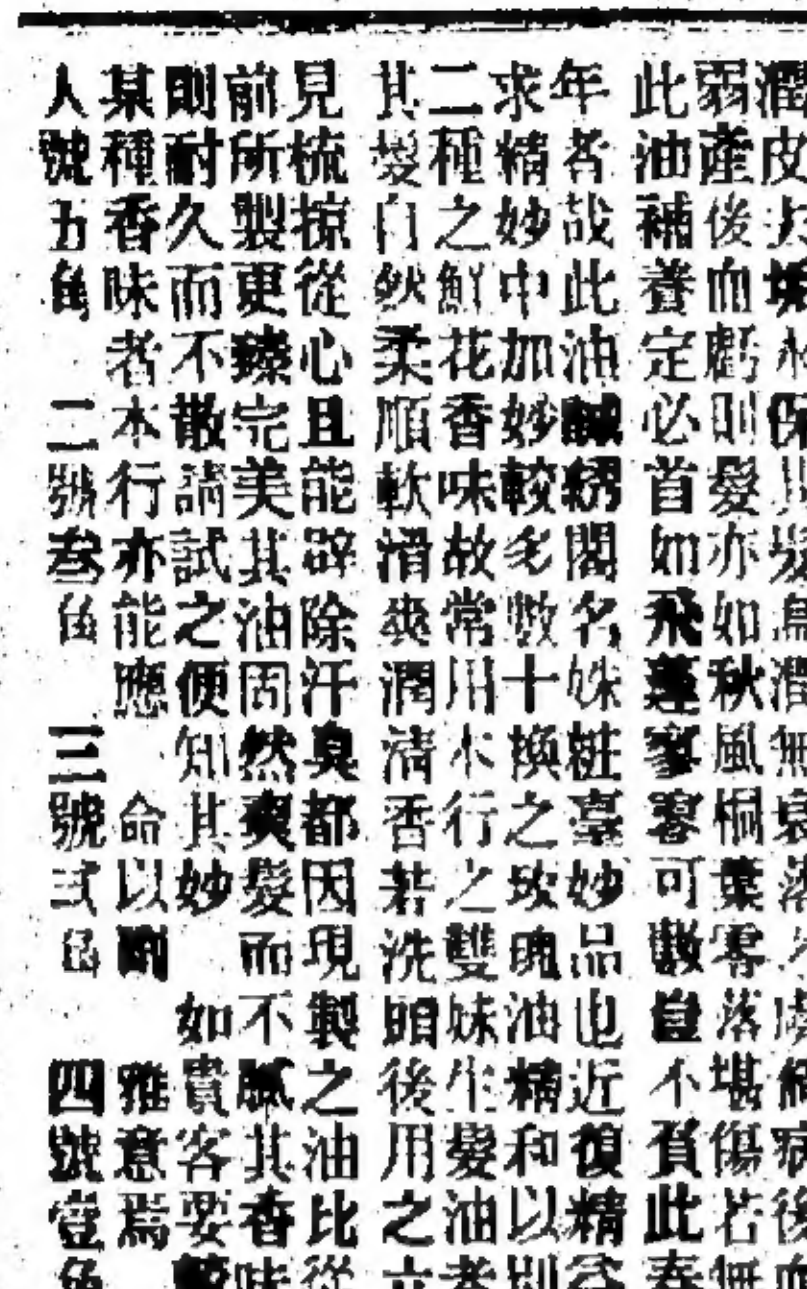 潤皮保其髮烏潤無衰落病後血
弱產後血虧則髮亦如秋風桐葉零落堪傷若無
此油補養定必首如飛蓬寥寥可數豈不負此春
年者哉此油誠綉閣名姝粧臺妙品也近復精益
求精妙中加妙較多數十換之玫瑰油精和以別
二種之鮮花香味故常用本行之雙妹生髮油者
其髮自然柔順軟滑爽潤清香若洗頭後用之立
見梳掠從心且能辟除汗臭都因現製之油比從
前所製更臻完美其油固然爽髮而不膩其香味
則耐久而不散請試之便知其妙 如貴客要
某種香味者本行亦能應 命以副 雅意焉
大號五角 二號叁角 三號弍角 四號壹角